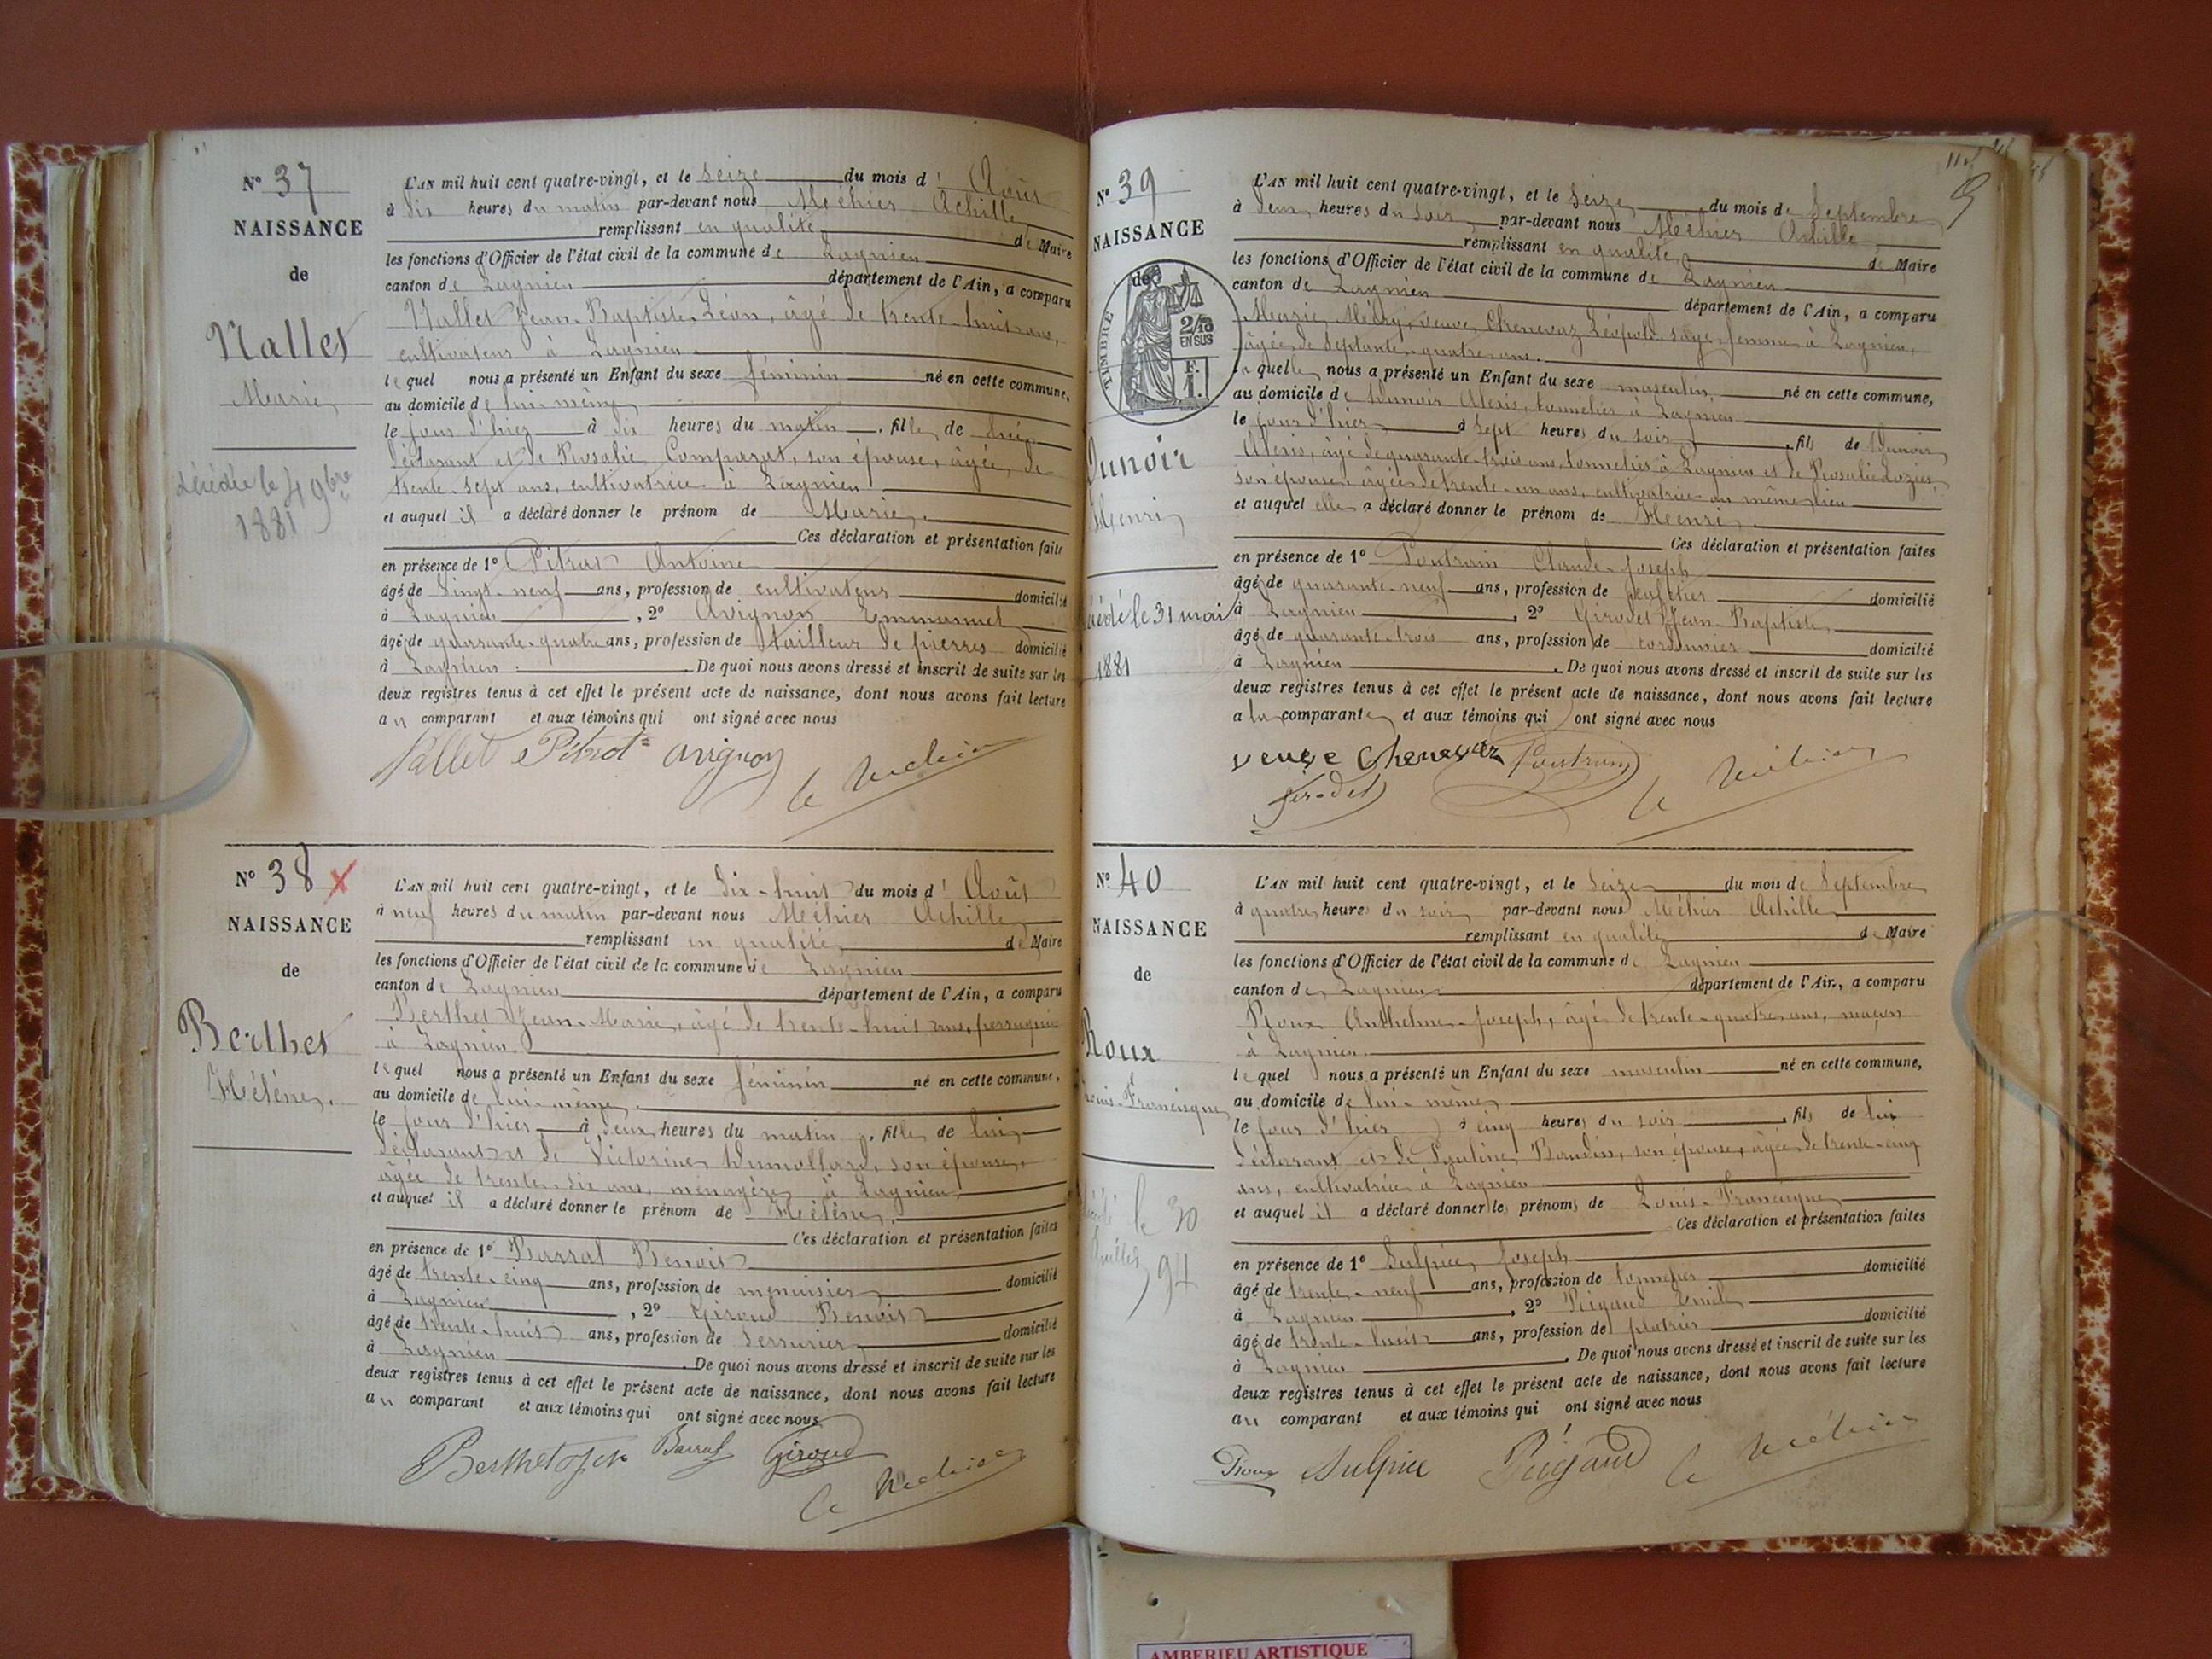 N° 37
NAISSANCE
de
Nallet
Marie
décédée le 4 9bre
1881
L'AN mil huit cent quatre-vingt, et le seize du mois d' Août
à dix heures du matin par-devant nous Méhier Achille
remplissant en qualité de Maire
les fonctions d'Officier de l'état civil de la commune de Lagnieu
canton de Lagnieu département de l'Ain, a comparu
Nallet Jean-Baptiste Léon, âgé de trente-huit ans,
cultivateur à Lagnieu
lequel nous a présenté un Enfant du sexe féminin né en cette commune,
au domicile de lui-même
le jour d'hier à dix heures du matin, fille de lui
déclarant et de Rosalie Comparat, son épouse, âgée de
trente-sept ans, cultivatrice à Lagnieu
et auquel il a déclaré donner le prénom de Marie.
Ces déclaration et présentation faites
en présence de 1° Pitrat Antoine
âgé de vingt-neuf ans, profession de cultivateur domicilié
à Lagnieu, 2° Avignon Emmanuel
âgé de quarante-quatre ans, profession de tailleur de pierres domicilié
à Lagnieu. De quoi nous avons dressé et inscrit de suite sur les
deux registres tenus à cet effet le présent acte de naissance, dont nous avons fait lecture
au comparant et aux témoins qui ont signé avec nous
Nallet Pitrat avignon
Méhier
N° 38 x
NAISSANCE
de
Berthet
Hélène.
L'AN mil huit cent quatre-vingt, et le dix-huit du mois d' Août
à neuf heures du matin par-devant nous Méhier Achille
remplissant en qualité de Maire
les fonctions d'Officier de l'état civil de la commune de Lagnieu
canton de Lagnieu département de l'Ain, a comparu
Berthet Jean-Marie, âgé de trente-huit ans, perruquier
à Lagnieu
lequel nous a présenté un Enfant du sexe féminin né en cette commune,
au domicile de lui-même
le jour d'hier à deux heures du matin, fille de lui
déclarant et de Victorine Dumollard, son épouse,
âgée de trente-six ans, ménagère à Lagnieu
et auquel il a déclaré donner le prénom de Hélène.
Ces déclaration et présentation faites
en présence de 1° Barral Benoit
âgé de trente-cinq ans, profession de menuisier domicilié
à Lagnieu, 2° Giroud Benoit
âgé de trente-huit ans, profession de serrurier domicilié
à Lagnieu. De quoi nous avons dressé et inscrit de suite sur les
deux registres tenus à cet effet le présent acte de naissance, dont nous avons fait lecture
au comparant et aux témoins qui ont signé avec nous
Berthet Barral Giroud
Méhier
9
N° 39
NAISSANCE
de
TIMBRE
2/10
EN SUS
F.
1.
Dunoir
Henri
décédé le 31 mai
1881
L'AN mil huit cent quatre-vingt, et le seize du mois de Septembre
à deux heures du soir par-devant nous Méhier Achille
remplissant en qualité de Maire
les fonctions d'Officier de l'état civil de la commune de Lagnieu
canton de Lagnieu département de l'Ain, a comparu
Marie Méhy, veuve Chenevaz Léopold sage-femme à Lagnieu,
âgée de septante-quatre ans.
laquelle nous a présenté un Enfant du sexe masculin né en cette commune,
au domicile de Dunoir Alexis, tonnelier à Lagnieu
le jour d'hier à sept heures du soir, fils de Dunoir
Alexis, âgé de quarante-trois ans, tonnelier à Lagnieu et de Rosalie Lozier,
son épouse, âgée de trente-un ans, cultivatrice au même lieu
et auquel elle a déclaré donner le prénom de Henri.
Ces déclaration et présentation faites
en présence de 1° Poutrain Claude-Joseph
âgé de quarante-neuf ans, profession de domicilié
à Lagnieu, 2° Girodet Jean-Baptiste
âgé de quarante-trois ans, profession de cordonnier domicilié
à Lagnieu. De quoi nous avons dressé et inscrit de suite sur les
deux registres tenus à cet effet le présent acte de naissance, dont nous avons fait lecture
a la comparante et aux témoins qui ont signé avec nous
veuve Chenevaz Poutrain
Girodet
Méhier
N° 40
NAISSANCE
de
Roux
Louis-Francisque
décédé le 30
Juillet 94
L'AN mil huit cent quatre-vingt, et le seize du mois de Septembre
à quatre heures du soir par-devant nous Méhier Achille
remplissant en qualité de Maire
les fonctions d'Officier de l'état civil de la commune de Lagnieu
canton de Lagnieu département de l'Ain, a comparu
Roux Anthelme-Joseph, âgé de trente-quatre ans, maçon
à Lagnieu
lequel nous a présenté un Enfant du sexe masculin né en cette commune,
au domicile de lui-même
le jour d'hier à cinq heures du soir, fils de lui
déclarant et de Pauline Baudin, son épouse, âgée de trente-cinq
ans, cultivatrice à Lagnieu
et auquel il a déclaré donner les prénoms de Louis-Francisque
Ces déclaration et présentation faites
en présence de 1° Sulpice Joseph
âgé de trente-neuf ans, profession de tonnelier domicilié
à Lagnieu, 2° Rigaud Emile
âgé de trente-huit ans, profession de plâtrier domicilié
à Lagnieu. De quoi nous avons dressé et inscrit de suite sur les
deux registres tenus à cet effet le présent acte de naissance, dont nous avons fait lecture
au comparant et aux témoins qui ont signé avec nous
Roux Sulpice Rigaud
Méhier
AMBERIEU ARTISTIQUE